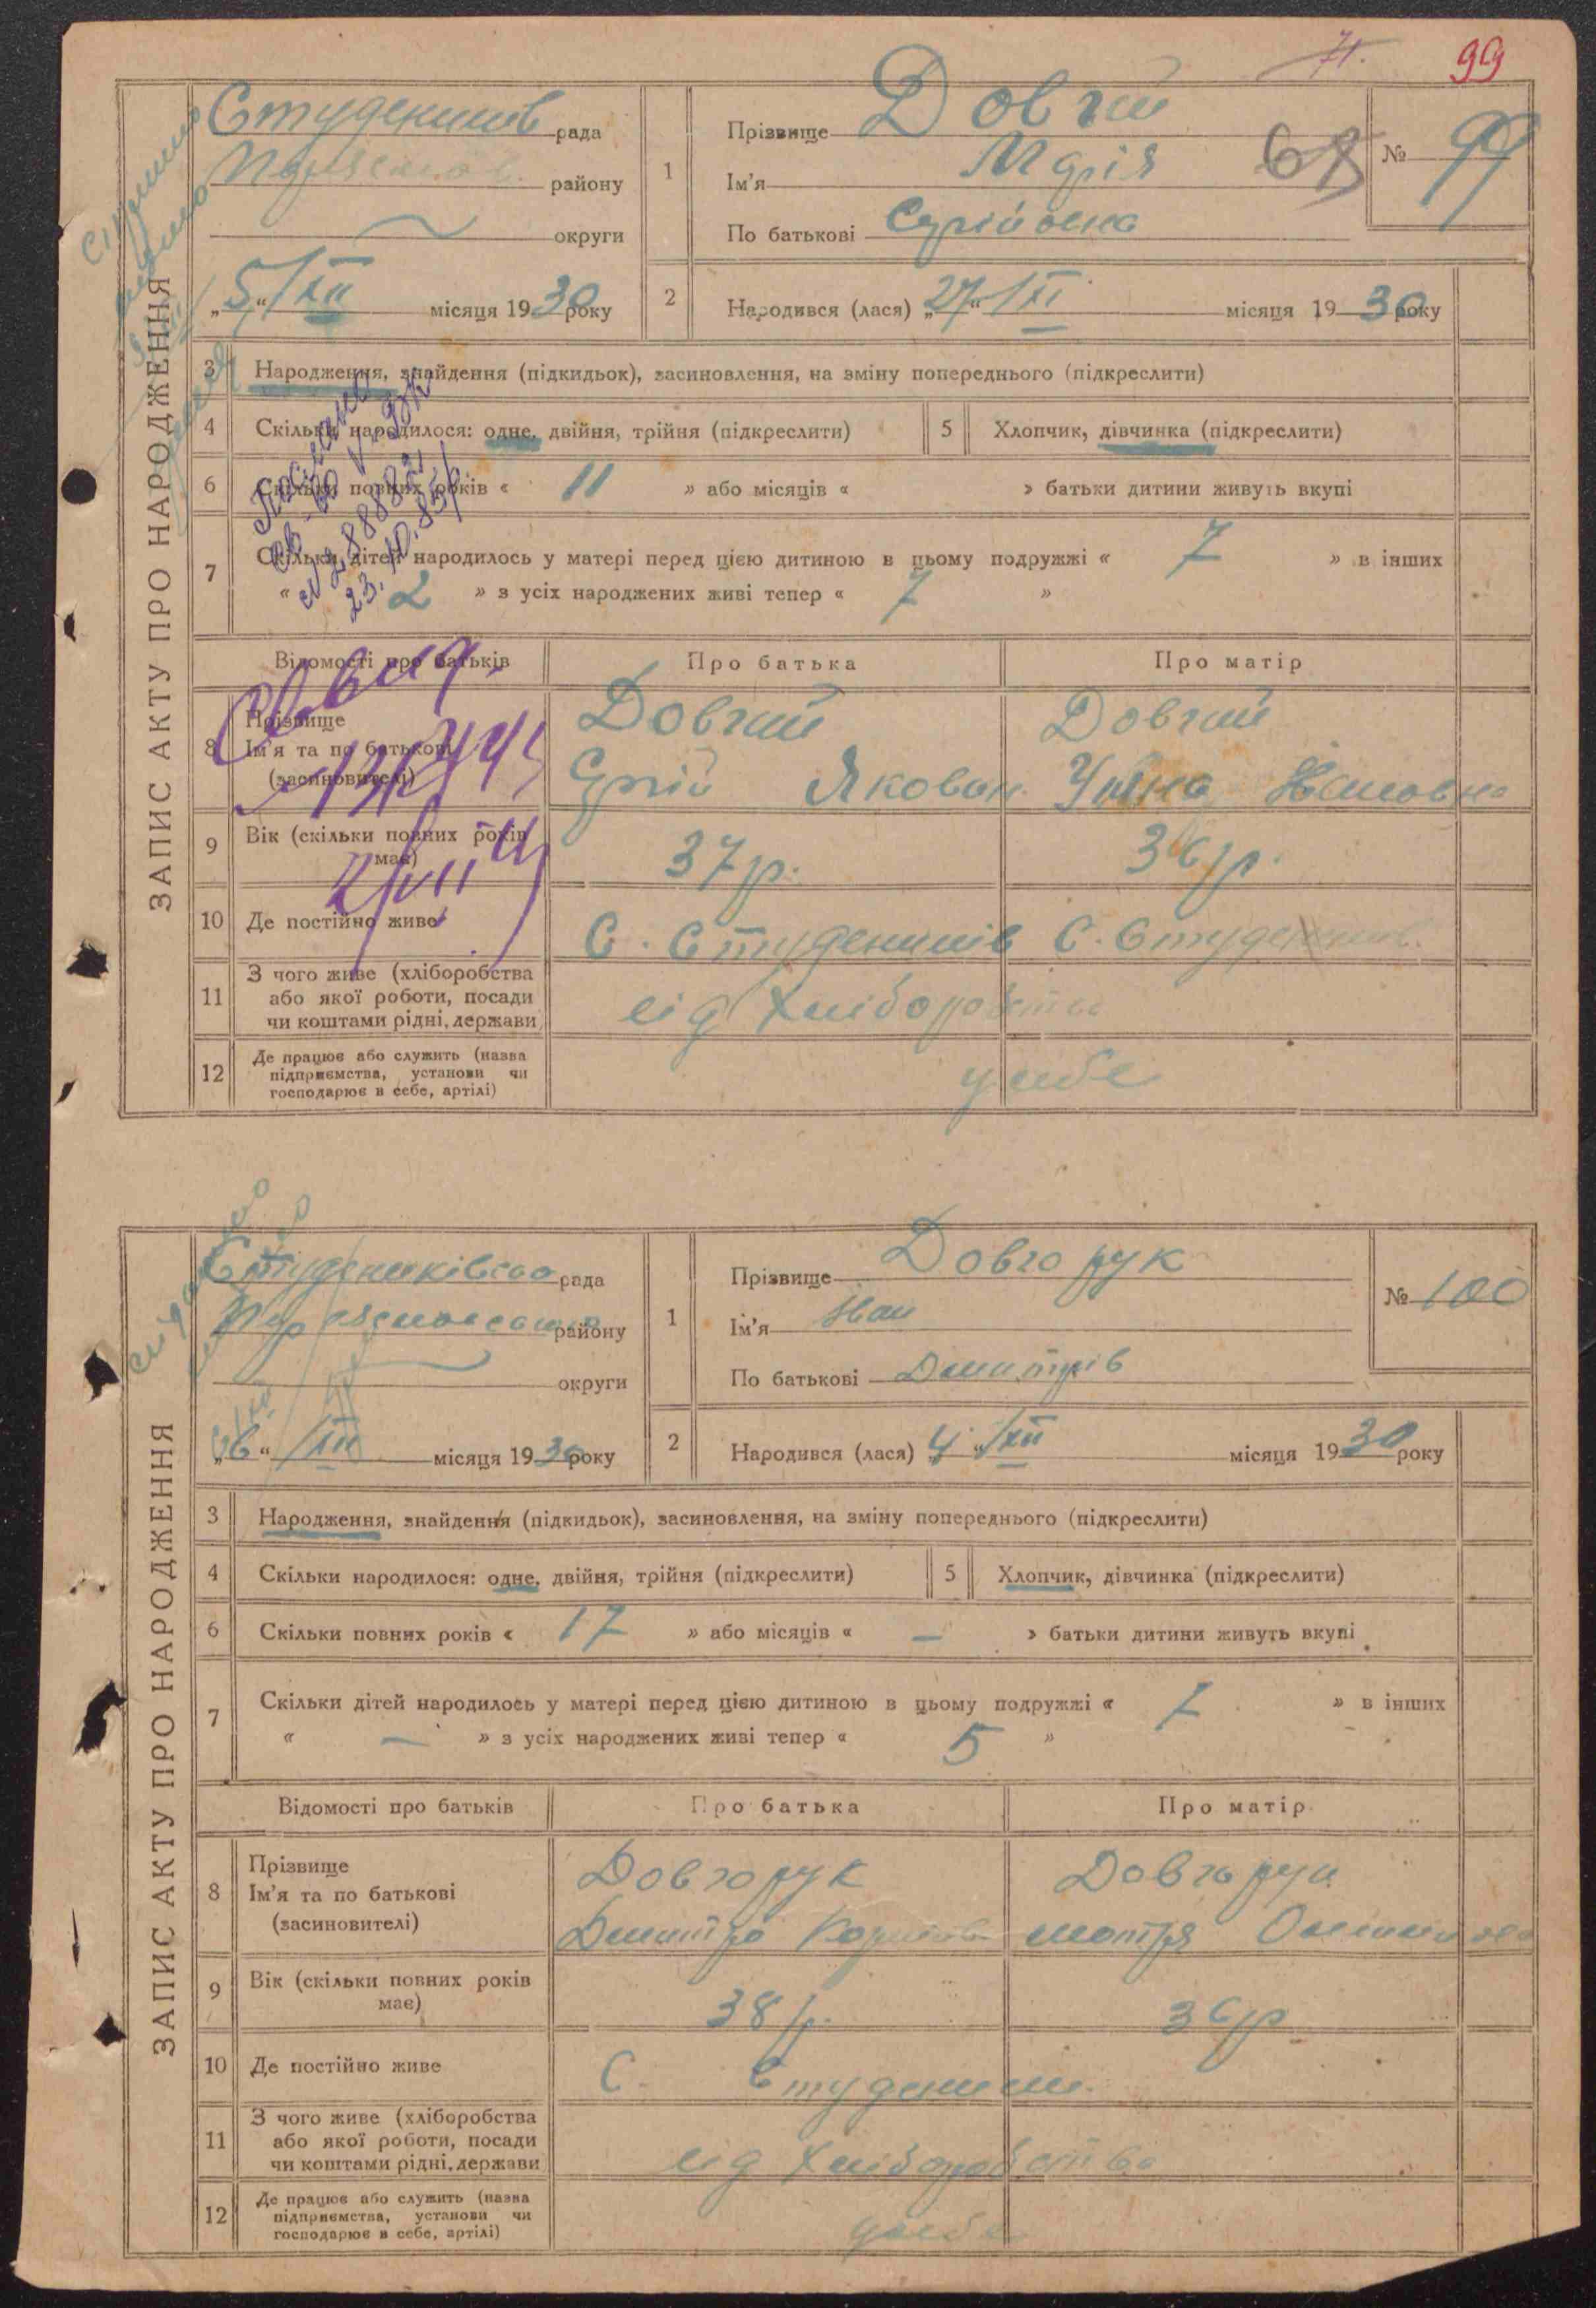 71.
99
ЗАПИС АКТУ ПРО НАРОДЖЕННЯ
Студеників рада
району
округи
„5“/XII місяця 1930 року
1
Прізвище Довгий
Ім'я Марія
По батькові
68
№ 99
2
Народився (лася) „27“/XI місяця 1930 року
3 Народження, знайдення (підкидьок), засиновлення, на зміну попереднього (підкреслити)
4 Скільки народилося: одне, двійня, трійня (підкреслити)
5 Хлопчик, дівчинка (підкреслити)
6 Скільки повних років « 11 » або місяців « » батьки дитини живуть вкупі
7 Скільки дітей народилось у матері перед цією дитиною в цьому подружжі « 7 » в інших
« 2 » з усіх народжених живі тепер « 7 »
Відомості про батьків Про батька Про матір
8 Прізвище
Ім'я та по батькові
(засиновителі)
Довгий
Довгий
9 Вік (скільки повних років
має)
37 р.
36 р.
10 Де постійно живе
С. Студеників
С.
11 З чого живе (хліборобства
або якої роботи, посади
чи коштами рідні, держави
від Хліборобства
12 Де працює або служить (назва
підприємства, установи чи
господарює в себе, артілі)
у себе
ЗАПИС АКТУ ПРО НАРОДЖЕННЯ
рада
району
округи
„6“ /XII місяця 1930 року
1
Прізвище Довгорук
Ім'я Іван
По батькові Дмитрів
№ 100
2
Народився (лася) „4“/XII місяця 1930 року
3 Народження, знайдення (підкидьок), засиновлення, на зміну попереднього (підкреслити)
4 Скільки народилося: одне, двійня, трійня (підкреслити)
5 Хлопчик, дівчинка (підкреслити)
6 Скільки повних років « 17 » або місяців « — » батьки дитини живуть вкупі
7 Скільки дітей народилось у матері перед цією дитиною в цьому подружжі « 7 » в інших
« — » з усіх народжених живі тепер « 5 »
Відомості про батьків Про батька Про матір
8 Прізвище
Ім'я та по батькові
(засиновителі)
Довгорук
Дмитро
Довгорук
Мотря
9 Вік (скільки повних років
має)
38 р.
36 р
10 Де постійно живе
С.
11 З чого живе (хліборобства
або якої роботи, посади
чи коштами рідні, держави
від Хліборобства
12 Де працює або служить (назва
підприємства, установи чи
господарює в себе, артілі)
у себе